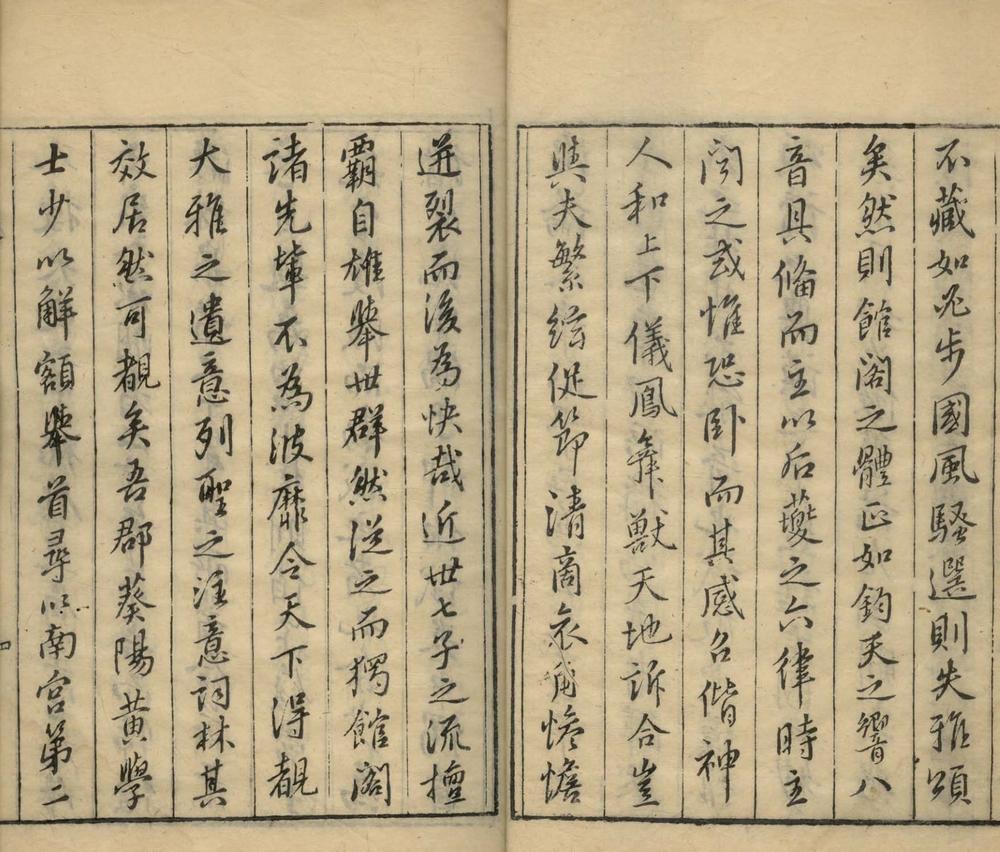 不藏如必步國風騷選則失雅頌
矣然則館閣之體正如鈞天之響八
音具備而主以后夔之六律時主
閱之或惟恐卧而其感召偕神
人和上下儀鳳舞獸天地訢合豈
與夫繁絃促節清商衣角慘憺
迸裂而後為快哉近世七子之流擅
霸自雄舉世群然從之而獨館閣
諸先輩不為波靡令天下得覩
大雅之遺意列聖之注意詞林其
效居然可覩矣吾郡葵陽黃學
士少以解額舉首尋以南宮第二
四